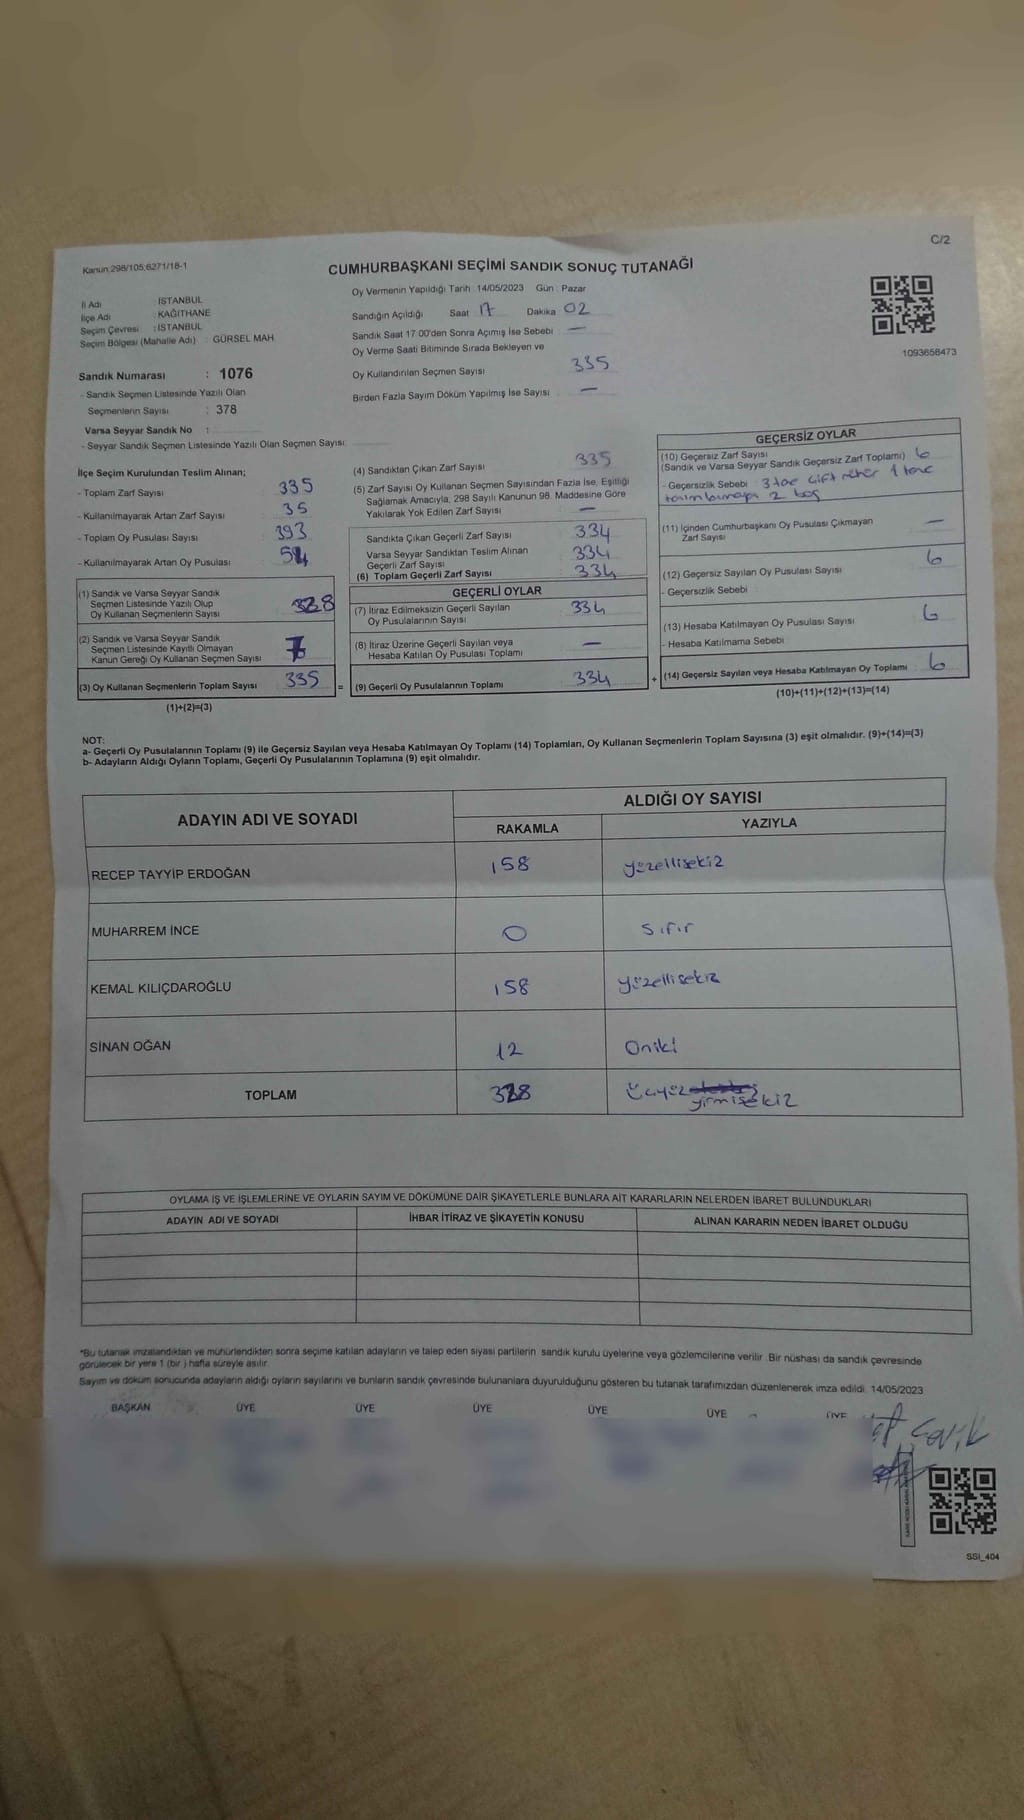 C/2
Kanun:298/105;6271/18-1
CUMHURBAŞKANI SEÇİMİ SANDIK SONUÇ TUTANAĞI
İl Adı : İSTANBUL
İlçe Adı : KAĞITHANE
Seçim Çevresi : İSTANBUL
Seçim Bölgesi (Mahalle Adı) : GÜRSEL MAH
Sandık Numarası : 1076
- Sandık Seçmen Listesinde Yazılı Olan
Seçmenlerin Sayısı : 378
Varsa Seyyar Sandık No :
- Seyyar Sandık Seçmen Listesinde Yazılı Olan Seçmen Sayısı:
Oy Vermenin Yapıldığı Tarih : 14/05/2023 Gün : Pazar
Sandığın Açıldığı Saat 17 Dakika 02
Sandık Saat 17:00'den Sonra Açımış İse Sebebi —
Oy Verme Saati Bitiminde Sırada Bekleyen ve
Oy Kullandırılan Seçmen Sayısı 335
Birden Fazla Sayım Döküm Yapılmış İse Sayısı —
1093658473
İlçe Seçim Kurulundan Teslim Alınan;
- Toplam Zarf Sayısı 335
- Kullanılmayarak Artan Zarf Sayısı 35
- Toplam Oy Pusulası Sayısı 393
- Kullanılmayarak Artan Oy Pusulası
(1) Sandık ve Varsa Seyyar Sandık
Seçmen Listesinde Yazılı Olup
Oy Kullanan Seçmenlerin Sayısı 328
(2) Sandık ve Varsa Seyyar Sandık
Seçmen Listesinde Kayıtlı Olmayan
Kanun Gereği Oy Kullanan Seçmen Sayısı 7
(3) Oy Kullanan Seçmenlerin Toplam Sayısı 335
(1)+(2)=(3)
(4) Sandıktan Çıkan Zarf Sayısı 335
(5) Zarf Sayısı Oy Kullanan Seçmen Sayısından Fazla İse, Eşitliği
Sağlamak Amacıyla, 298 Sayılı Kanunun 98. Maddesine Göre
Yakılarak Yok Edilen Zarf Sayısı —
Sandıkta Çıkan Geçerli Zarf Sayısı 334
Varsa Seyyar Sandıktan Teslim Alınan
Geçerli Zarf Sayısı 334
(6) Toplam Geçerli Zarf Sayısı 334
GEÇERLİ OYLAR
(7) İtiraz Edilmeksizin Geçerli Sayılan
Oy Pusulalarının Sayısı 334
(8) İtiraz Üzerine Geçerli Sayılan veya
Hesaba Katılan Oy Pusulası Toplamı —
= (9) Geçerli Oy Pusulalarının Toplamı 334
GEÇERSİZ OYLAR
(10) Geçersiz Zarf Sayısı
(Sandık ve Varsa Seyyar Sandık Geçersiz Zarf Toplamı) 6
- Geçersizlik Sebebi 3 tane çift mühür 1 tane
2 boş
(11) İçinden Cumhurbaşkanı Oy Pusulası Çıkmayan
Zarf Sayısı —
(12) Geçersiz Sayılan Oy Pusulası Sayısı 6
- Geçersizlik Sebebi
(13) Hesaba Katılmayan Oy Pusulası Sayısı 6
- Hesaba Katılmama Sebebi
+ (14) Geçersiz Sayılan veya Hesaba Katılmayan Oy Toplamı 6
(10)+(11)+(12)+(13)=(14)
NOT:
a- Geçerli Oy Pusulalarının Toplamı (9) ile Geçersiz Sayılan veya Hesaba Katılmayan Oy Toplamı (14) Toplamları, Oy Kullanan Seçmenlerin Toplam Sayısına (3) eşit olmalıdır. (9)+(14)=(3)
b- Adayların Aldığı Oyların Toplamı, Geçerli Oy Pusulalarının Toplamına (9) eşit olmalıdır.
ADAYIN ADI VE SOYADI
ALDIĞI OY SAYISI
RAKAMLA YAZIYLA
RECEP TAYYİP ERDOĞAN 158 yüzellisekiz
MUHARREM İNCE 0 sıfır
KEMAL KILIÇDAROĞLU 158 yüzellisekiz
SİNAN OĞAN 12 Oniki
TOPLAM 328 Üçyüz
yirmisekiz
OYLAMA İŞ VE İŞLEMLERİNE VE OYLARIN SAYIM VE DÖKÜMÜNE DAİR ŞİKAYETLERLE BUNLARA AİT KARARLARIN NELERDEN İBARET BULUNDUKLARI
ADAYIN ADI VE SOYADI İHBAR İTİRAZ VE ŞİKAYETİN KONUSU ALINAN KARARIN NEDEN İBARET OLDUĞU
*Bu tutanak imzalandıktan ve mühürlendikten sonra seçime katılan adayların ve talep eden siyasi partilerin sandık kurulu üyelerine veya gözlemcilerine verilir. Bir nüshası da sandık çevresinde
görülecek bir yere 1 (bir) hafta süreyle asılır.
Sayım ve döküm sonucunda adayların aldığı oyların sayılarını ve bunların sandık çevresinde bulunanlara duyurulduğunu gösteren bu tutanak tarafımızdan düzenlenerek imza edildi. 14/05/2023
BAŞKAN ÜYE ÜYE ÜYE ÜYE ÜYE ÜYE
SSI_404